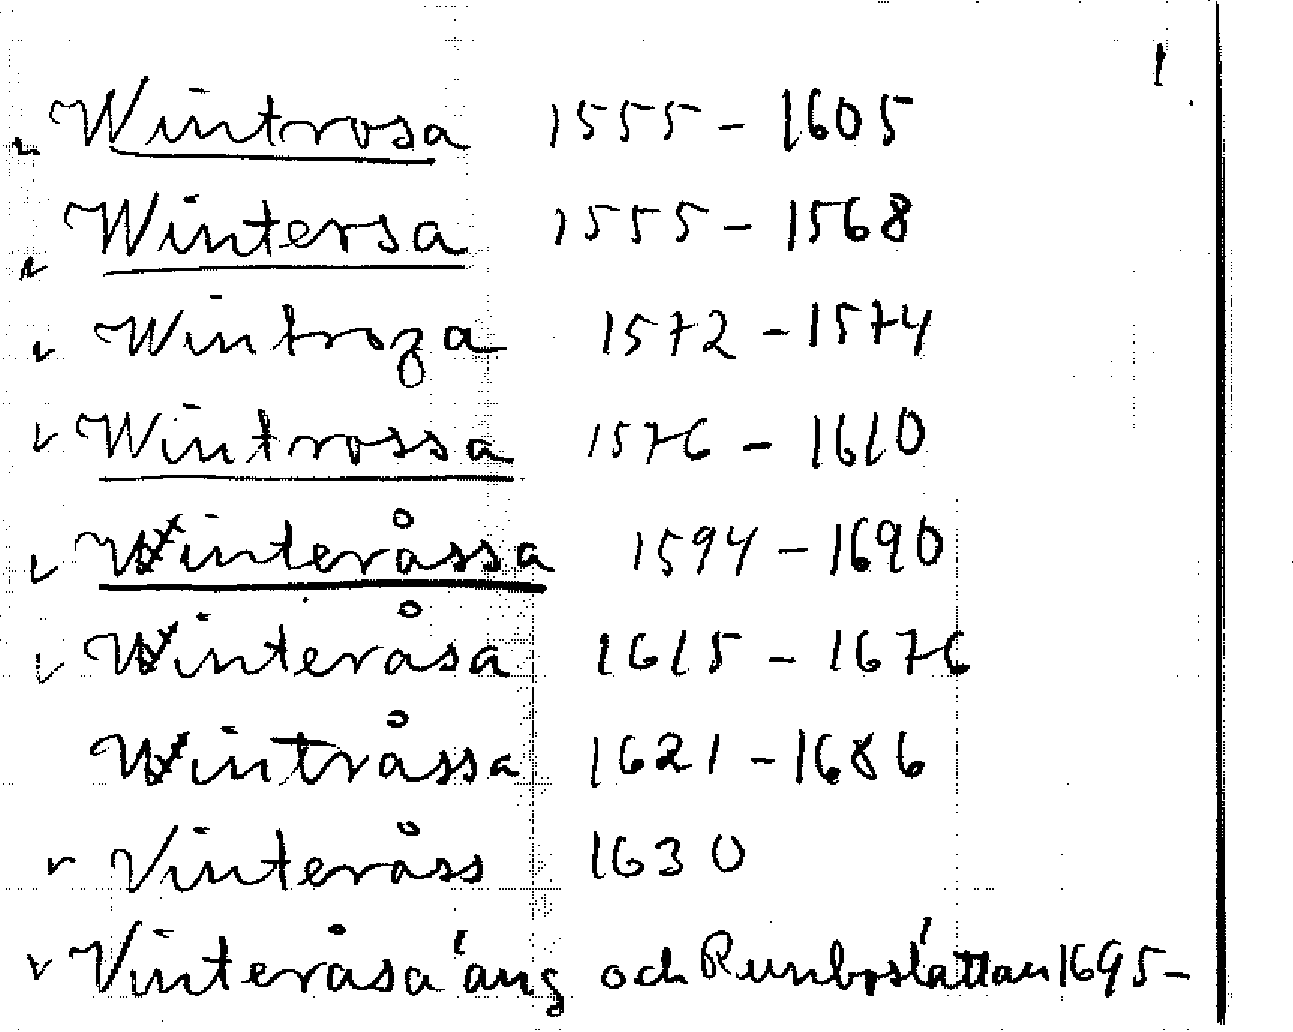 1
Wintrosa 1555 - 1605
Wintersa 1555 - 1568
Wintroza 1572 - 1574
Wintrossa 1576 - 1610
Winteråssa 1594 - 1690
Winteråsa 1615 - 1676
Wintråssa 1621 - 1686
Vinteråss 1630
Vinteråsa äng och Runboslättan 1695 -